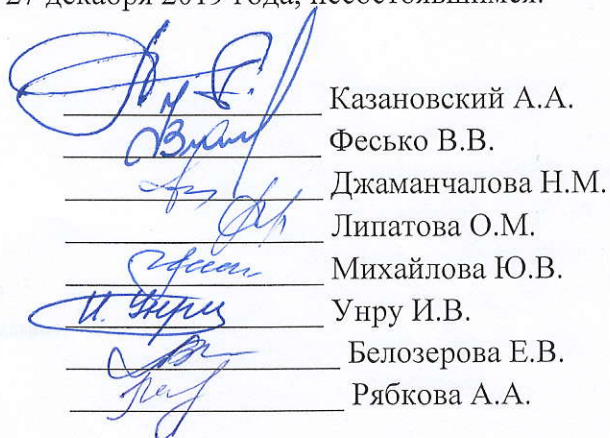 27 декабря 2019 года, несостоявшимся.
Казановский А.А.
Фесько В.В.
Джаманчалова Н.М.
Липатова О.М.
Михайлова Ю.В.
И. Унру Унру И.В.
Белозерова Е.В.
Рябкова А.А.